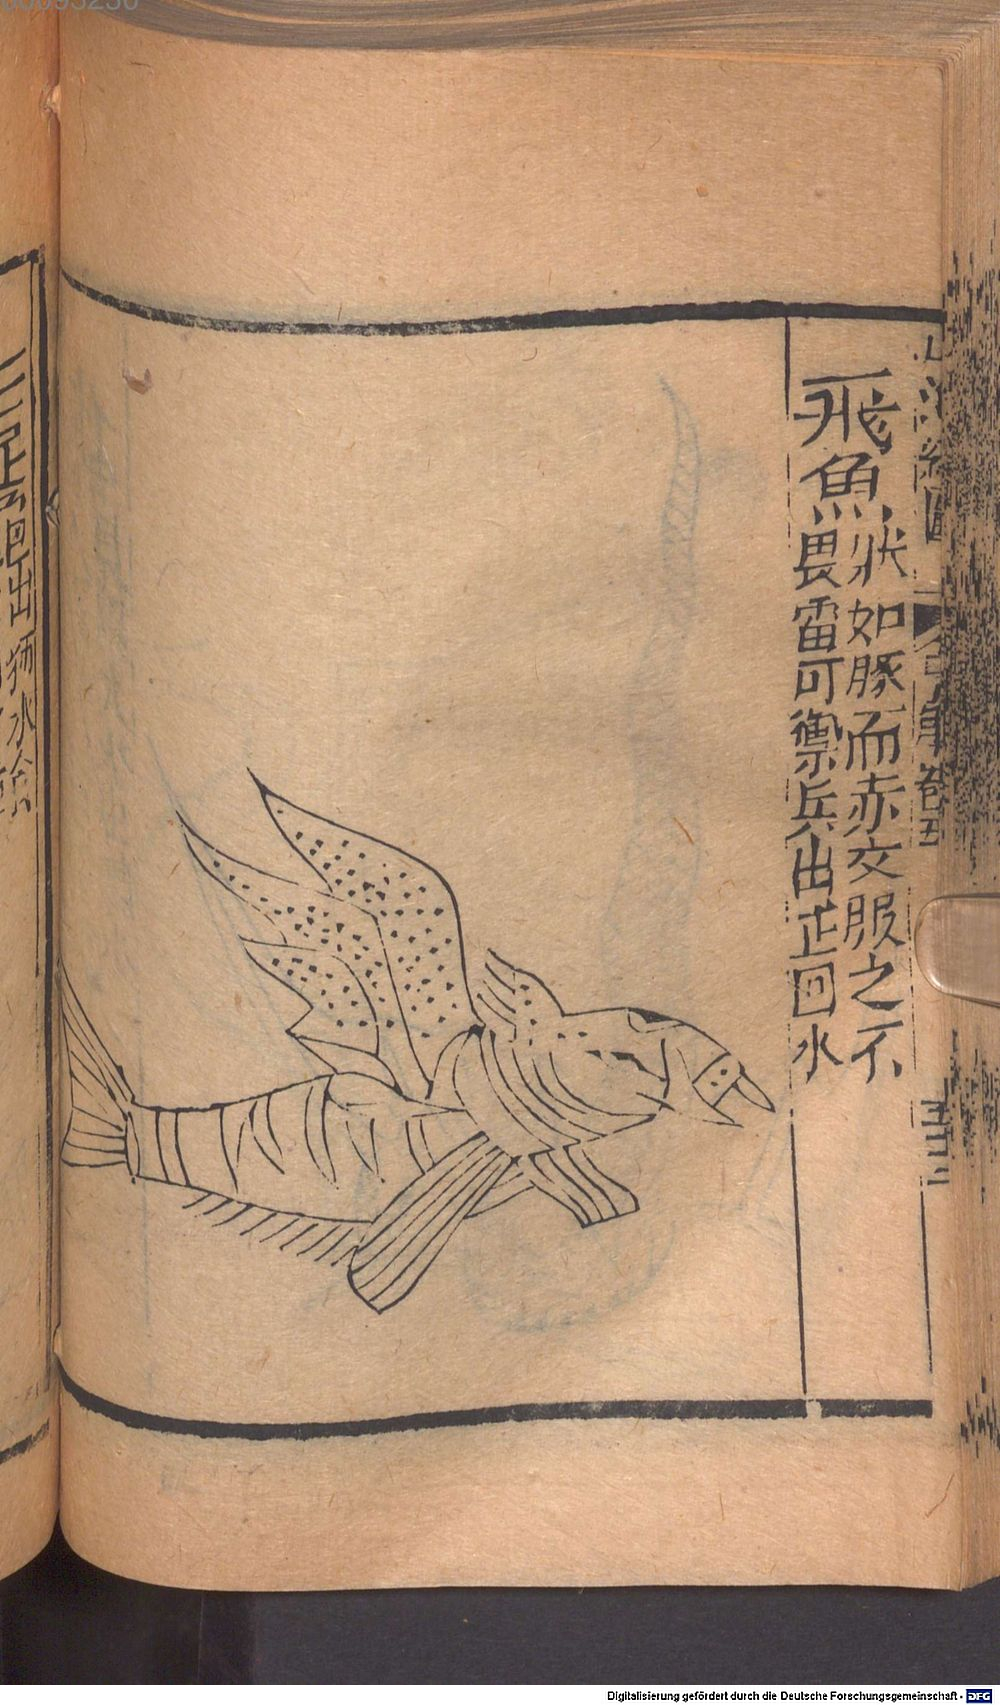 飛魚
狀如豚而赤文服之不
畏雷可禦兵出正回水
三足龜出狂水
Digitalisierung gefördert durch die Deutsche Forschungsgemeinschaft - DFG